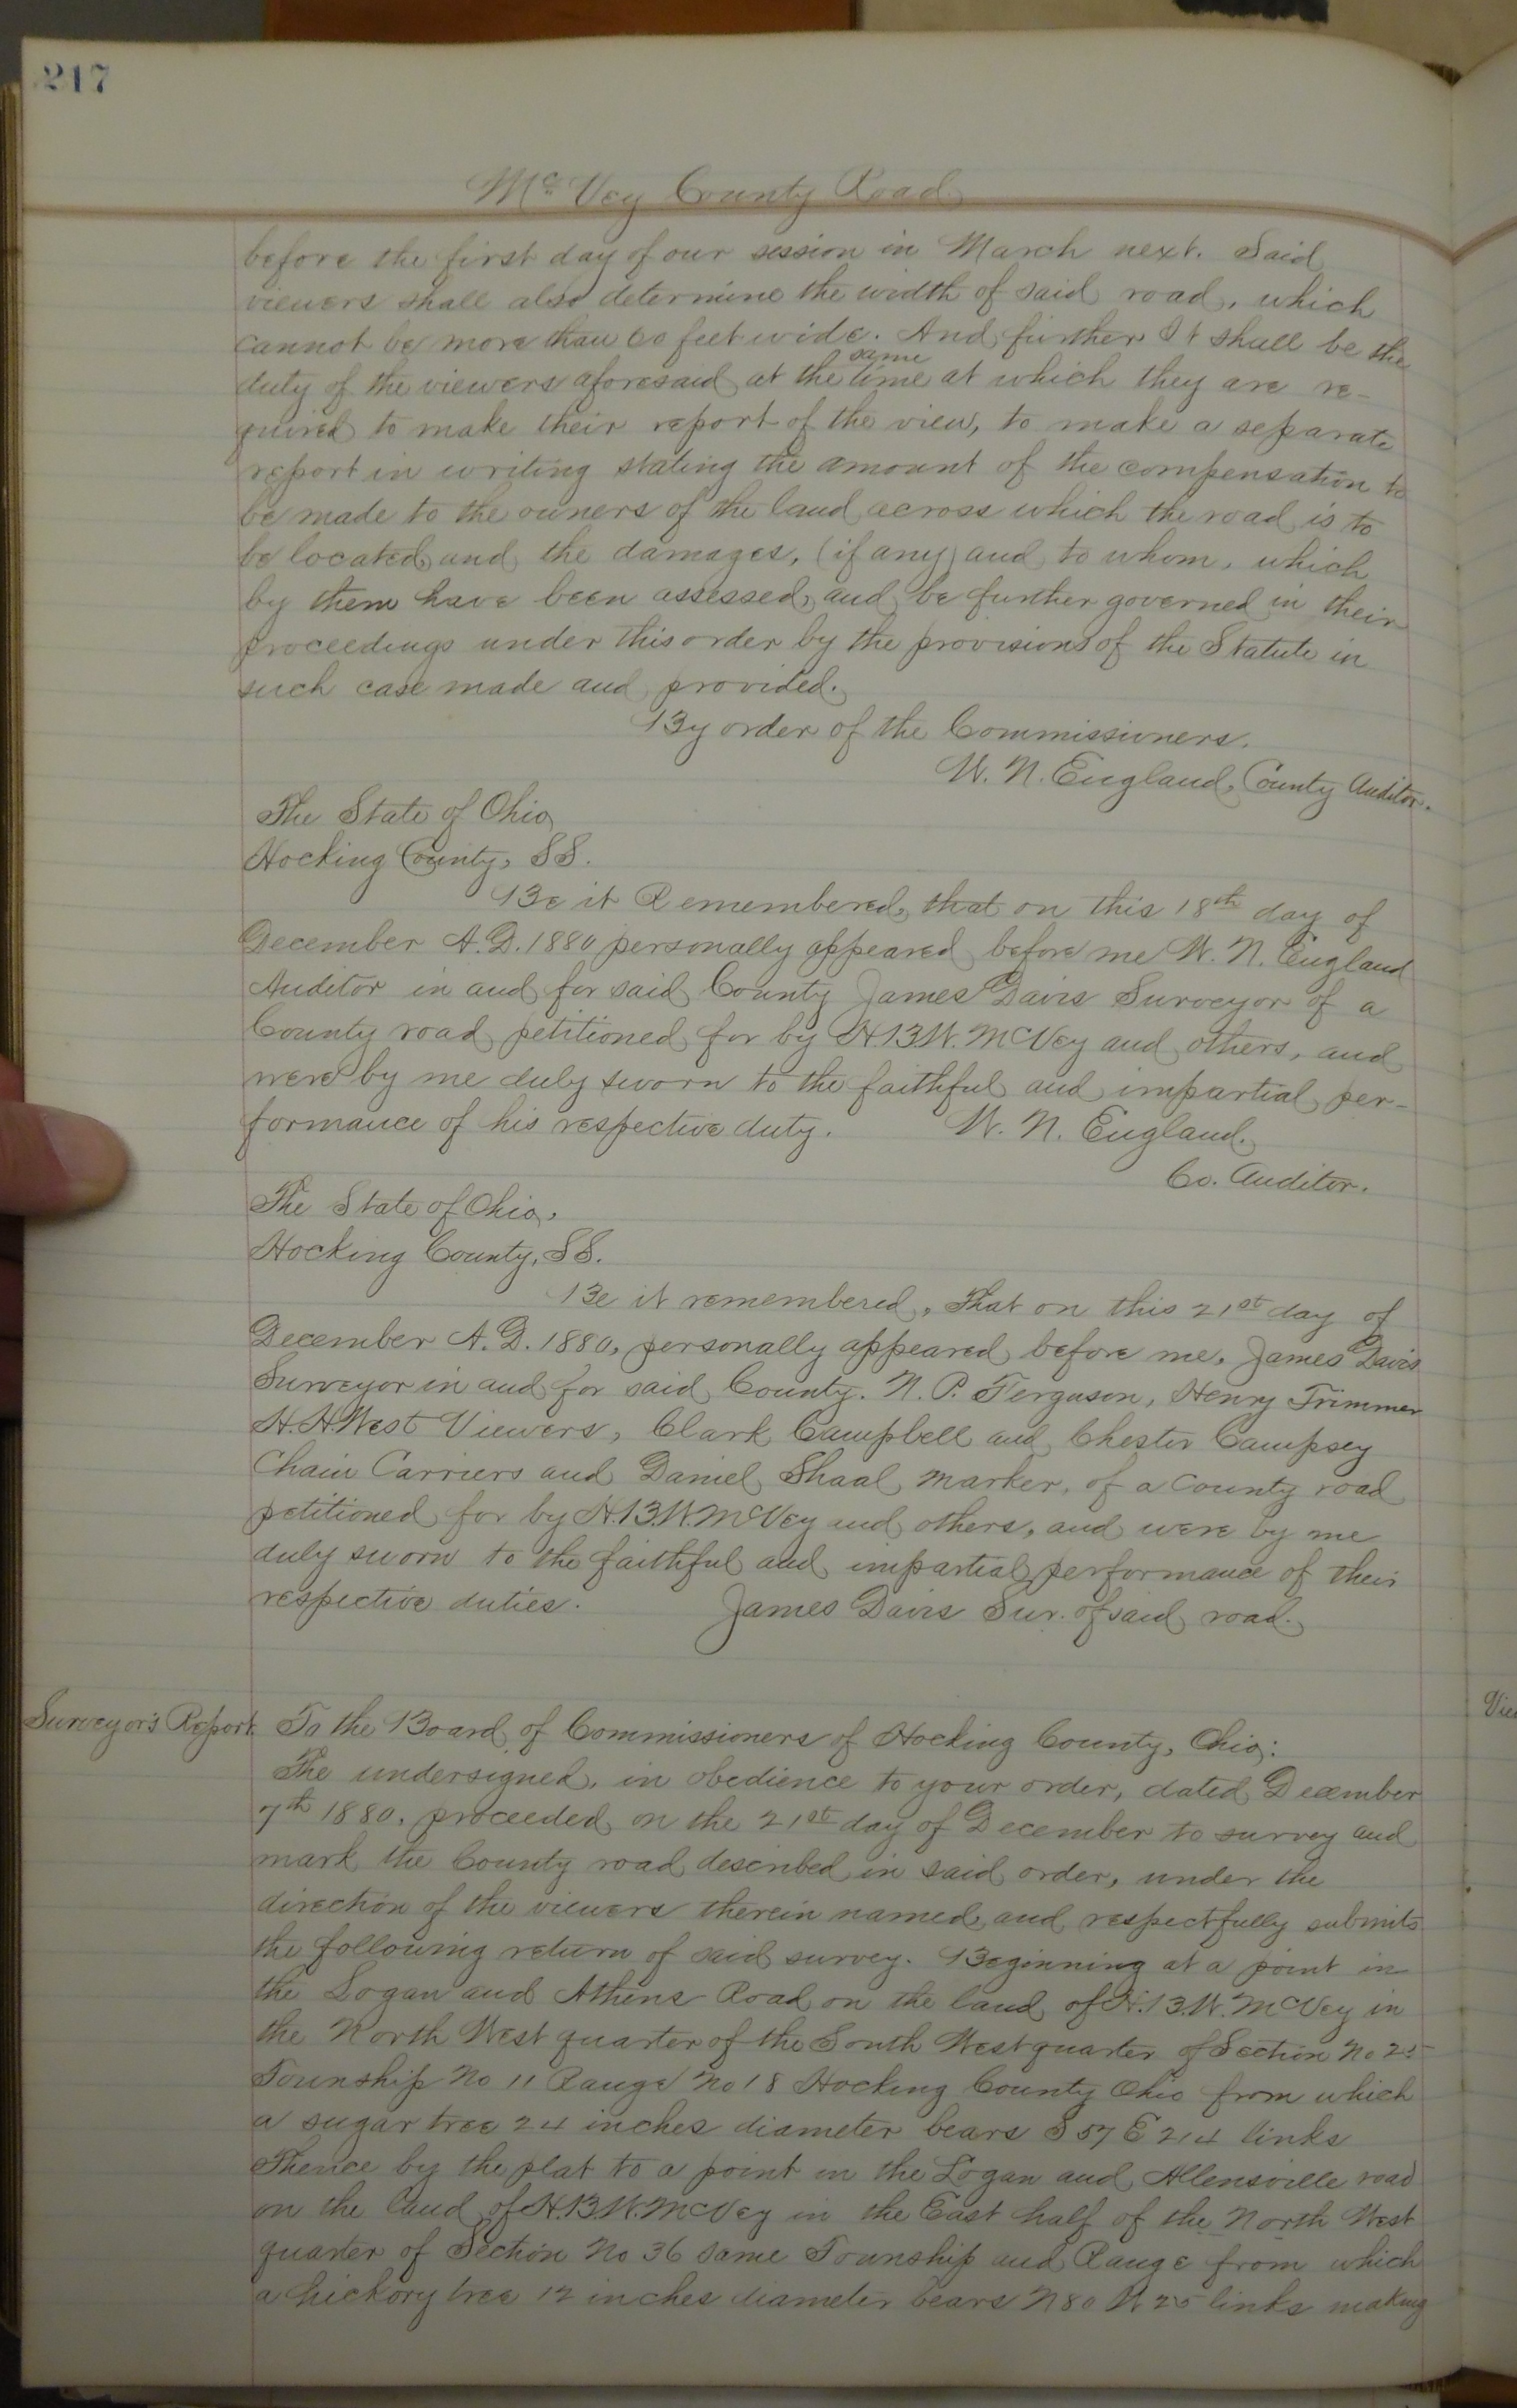 217
Mc Vey County Road
before the first day of our session in March next. Said
viewers shall also determine the width of said road, which
cannot be more than 60 feet wide. And further It shall be the
same
duty of the viewers aforesaid at the time at which they are re-
quired to make their report of the view, to make a separate
report in writing stating the amount of the compensation to
be made to the owners of the land across which the road is to
be located, and the damages, (if any) and to whom, which
by them have been assessed, and be further governed in their
proceedings under this order by the provisions of the Statute in
such case made and provided.
By order of the Commissioners.
W. N. England, County Auditor.
The State of Ohio
Hocking County, SS.
Be it Remembered, that on this 18th day of
December A.D. 1880 personally appeared before me W. N. England
Auditor in and for said County James Davis Surveyor of a
County road petitioned for by H.B.W. McVey and others, and
were by me duly sworn to the faithful and impartial per-
formance of his respective duty. W. N. England.
Co. Auditor.
The State of Ohio,
Hocking County, SS.
Be it remembered, That on this 21st day of
December A.D. 1880, personally appeared before me, James Davis
Surveyor in and for said County. N. P. Ferguson, Henry Trimmer
H.H. West Viewers, Clark Campbell and Chester Campsey
Chain Carriers and Daniel Shaal marker, of a County road
petitioned for by H.B.W. McVey and others, and were by me
duly sworn to the faithful and impartial performance of their
respective duties. James Davis Sur. of said road.
Surveyor's Report. To the Board of Commissioners of Hocking County, Ohio:
The undersigned, in obedience to your order, dated December
7th 1880, proceeded on the 21st day of December to survey and
mark the County road described in said order, under the
direction of the viewers therein named, and respectfully submits
the following return of said survey. Beginning at a point in
the Logan and Athens Road on the land of H.B.W. McVey in
the North West quarter of the South West quarter of Section No 25
Township No 11 Range No 18 Hocking County Ohio from which
a sugar tree 24 inches diameter bears S 57 E 214 links
Thence by the plat to a point in the Logan and Allensville road
on the land of H.B.W. McVey in the East half of the North West
quarter of Section No 36 same Township and Range from which
a hickory tree 12 inches diameter bears N 80 W 25 links making